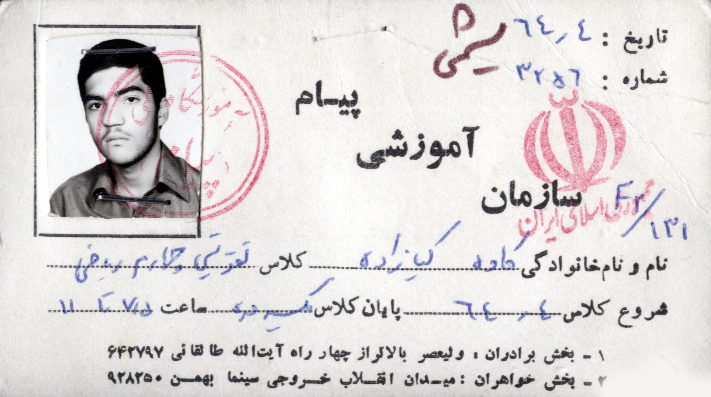 تاریخ : ۶۴٫۴
شماره : ۳۲۵۶
شیمی
پیـام
آموزشی
سازمان
جمهوری اسلامی ایران
۴۲/۱۳۱
نام و نام‌خانوادگی کاوه کیازاده کلاس تقویتی چهارم ریاضی
شروع کلاس ۶۴٫۴ پایان کلاس ساعت ۷/۵ تا ۱۱
۱ - بخش برادران : ولیعصر بالاتراز چهار راه آیت‌الله طالقانی ۶۴۲۷۹۷
۲ - بخش خواهران : میـدان انقـلاب خـروجی سینما بهمـن ۹۲۸۲۵۰